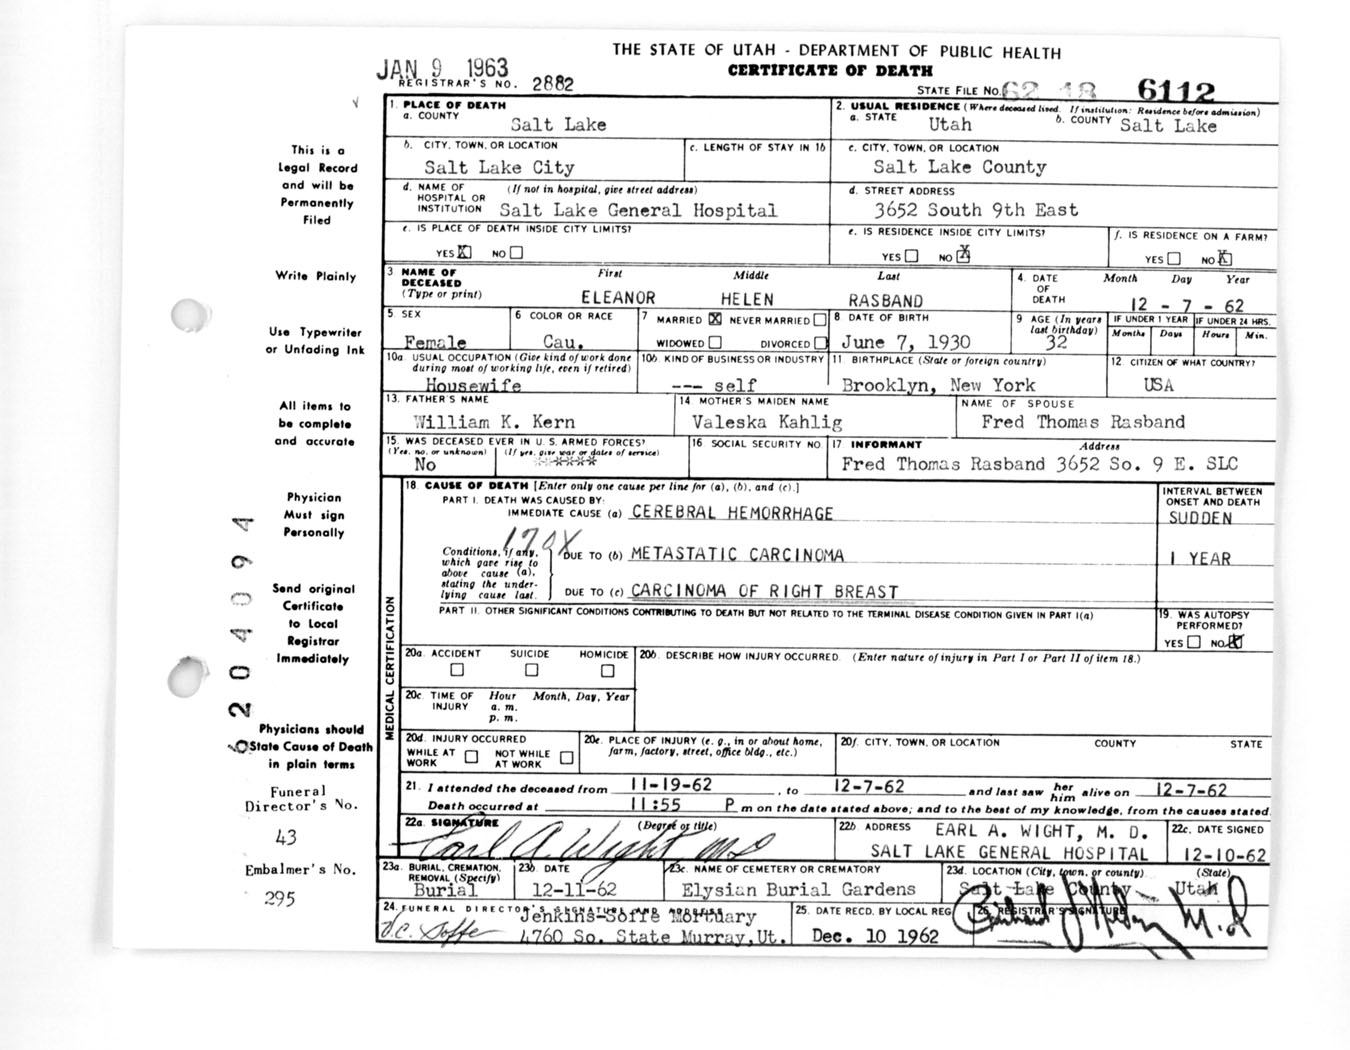 THE STATE OF UTAH - DEPARTMENT OF PUBLIC HEALTH
CERTIFICATE OF DEATH
JAN 9 1963
REGISTRAR'S NO. 2882
STATE FILE No. 62 18 6112
1. PLACE OF DEATH
a. COUNTY Salt Lake
2. USUAL RESIDENCE (Where deceased lived. If institution: Residence before admission)
a. STATE Utah b. COUNTY Salt Lake
b. CITY, TOWN, OR LOCATION
Salt Lake City
c. LENGTH OF STAY IN 1b
c. CITY, TOWN, OR LOCATION
Salt Lake County
d. NAME OF HOSPITAL OR INSTITUTION (If not in hospital, give street address)
Salt Lake General Hospital
d. STREET ADDRESS
3652 South 9th East
e. IS PLACE OF DEATH INSIDE CITY LIMITS?
YES X NO
e. IS RESIDENCE INSIDE CITY LIMITS?
YES NO X
f. IS RESIDENCE ON A FARM?
YES NO X
3 NAME OF DECEASED (Type or print)
First Middle Last
ELEANOR HELEN RASBAND
4. DATE OF DEATH
Month Day Year
12 - 7 - 62
5. SEX
Female
6 COLOR OR RACE
Cau.
7 MARRIED X NEVER MARRIED
WIDOWED DIVORCED
8 DATE OF BIRTH
June 7, 1930
9 AGE (In years last birthday)
32
IF UNDER 1 YEAR IF UNDER 24 HRS.
Months Days Hours Min.
10a. USUAL OCCUPATION (Give kind of work done during most of working life, even if retired)
Housewife
10b. KIND OF BUSINESS OR INDUSTRY
--- self
11 BIRTHPLACE (State or foreign country)
Brooklyn, New York
12 CITIZEN OF WHAT COUNTRY?
USA
13. FATHER'S NAME
William K. Kern
14 MOTHER'S MAIDEN NAME
Valeska Kahlig
NAME OF SPOUSE
Fred Thomas Rasband
15. WAS DECEASED EVER IN U. S. ARMED FORCES?
(Yes, no, or unknown) (If yes, give war or dates of service)
No
16 SOCIAL SECURITY NO.
17 INFORMANT Address
Fred Thomas Rasband 3652 So. 9 E. SLC
18. CAUSE OF DEATH [Enter only one cause per line for (a), (b), and (c).]
PART I. DEATH WAS CAUSED BY:
IMMEDIATE CAUSE (a) CEREBRAL HEMORRHAGE
INTERVAL BETWEEN ONSET AND DEATH
SUDDEN
170X
Conditions, if any, which gave rise to above cause (a), stating the underlying cause last.
DUE TO (b) METASTATIC CARCINOMA
1 YEAR
DUE TO (c) CARCINOMA OF RIGHT BREAST
PART II. OTHER SIGNIFICANT CONDITIONS CONTRIBUTING TO DEATH BUT NOT RELATED TO THE TERMINAL DISEASE CONDITION GIVEN IN PART I(a)
19. WAS AUTOPSY PERFORMED?
YES NO X
MEDICAL CERTIFICATION
20a. ACCIDENT SUICIDE HOMICIDE
20b. DESCRIBE HOW INJURY OCCURRED. (Enter nature of injury in Part I or Part II of item 18.)
20c. TIME OF INJURY Hour Month, Day, Year
a. m.
p. m.
20d. INJURY OCCURRED
WHILE AT WORK NOT WHILE AT WORK
20e. PLACE OF INJURY (e. g., in or about home, farm, factory, street, office bldg., etc.)
20f. CITY, TOWN, OR LOCATION COUNTY STATE
21. I attended the deceased from 11-19-62, to 12-7-62 and last saw her him alive on 12-7-62
Death occurred at 11:55 P m on the date stated above; and to the best of my knowledge, from the causes stated.
22a. SIGNATURE (Degree or title)
Earl A. Wight MD
22b. ADDRESS EARL A. WIGHT, M. D.
SALT LAKE GENERAL HOSPITAL
22c. DATE SIGNED
12-10-62
23a. BURIAL, CREMATION, REMOVAL (Specify)
Burial
23b. DATE
12-11-62
23c. NAME OF CEMETERY OR CREMATORY
Elysian Burial Gardens
23d. LOCATION (City, town, or county) (State)
Salt Lake County Utah
24. FUNERAL DIRECTOR'S SIGNATURE AND ADDRESS
Jenkins-Soffe Mortuary
4760 So. State Murray, Ut.
25. DATE RECD. BY LOCAL REG.
Dec. 10 1962
26. REGISTRAR'S SIGNATURE
This is a
Legal Record
and will be
Permanently
Filed
Write Plainly
Use Typewriter
or Unfading Ink
All items to
be complete
and accurate
Physician
Must sign
Personally
Send original
Certificate
to Local
Registrar
Immediately
Physicians should
State Cause of Death
in plain terms
Funeral
Director's No.
43
Embalmer's No.
295
6204094